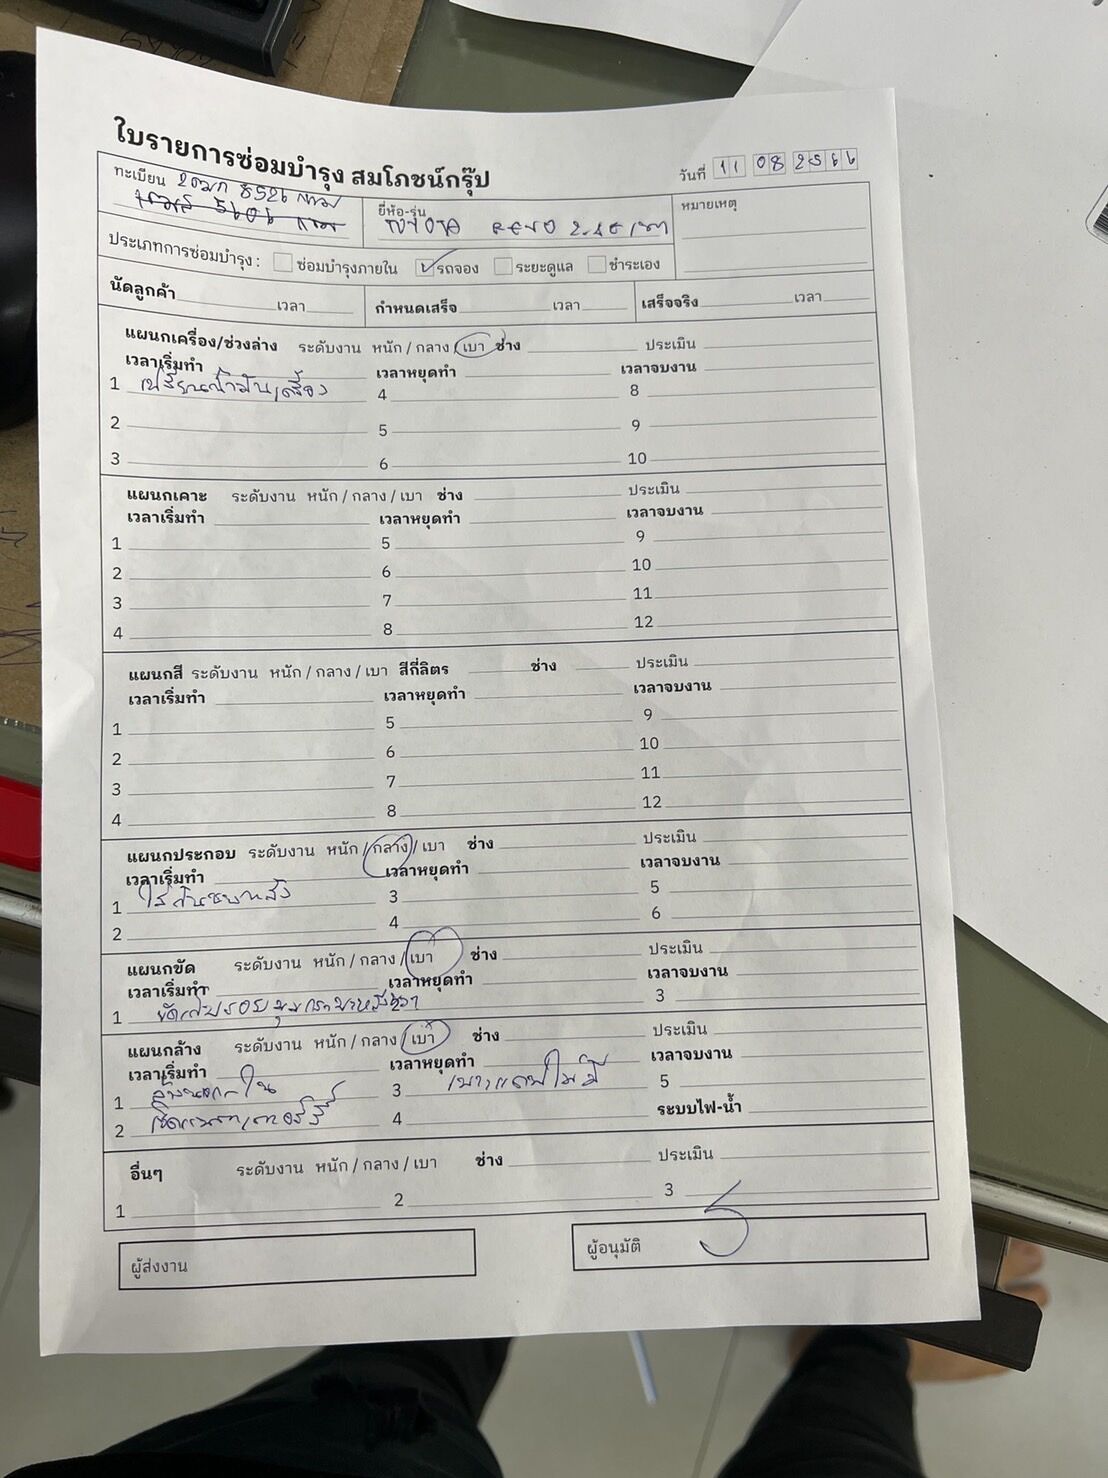 ใบรายการซ่อมบำรุง สมโภชน์กรุ๊ป
วันที่ 11 08 2566
ทะเบียน 2ฒก 8526 กทม
ยี่ห้อ-รุ่น TOYOTA REVO 2.4E
หมายเหตุ
ประเภทการซ่อมบำรุง : ซ่อมบำรุงภายใน รถจอง ระยะดูแล ชำระเอง
นัดลูกค้า เวลา กำหนดเสร็จ เวลา เสร็จจริง เวลา
แผนกเครื่อง/ช่วงล่าง ระดับงาน หนัก / กลาง / เบา ช่าง ประเมิน
เวลาเริ่มทำ เวลาหยุดทำ เวลาจบงาน
1 เปลี่ยนน้ำมันเครื่อง 4 8
2 5 9
3 6 10
แผนกเคาะ ระดับงาน หนัก / กลาง / เบา ช่าง ประเมิน
เวลาเริ่มทำ เวลาหยุดทำ เวลาจบงาน
1 5 9
2 6 10
3 7 11
4 8 12
แผนกสี ระดับงาน หนัก / กลาง / เบา สีกี่ลิตร ช่าง ประเมิน
เวลาเริ่มทำ เวลาหยุดทำ เวลาจบงาน
1 5 9
2 6 10
3 7 11
4 8 12
แผนกประกอบ ระดับงาน หนัก / กลาง / เบา ช่าง ประเมิน
เวลาเริ่มทำ เวลาหยุดทำ เวลาจบงาน
1 ใส่กันชนหลัง 3 5
2 4 6
แผนกขัด ระดับงาน หนัก / กลาง / เบา ช่าง ประเมิน
เวลาเริ่มทำ เวลาหยุดทำ เวลาจบงาน
1 2 3
แผนกล้าง ระดับงาน หนัก / กลาง / เบา ช่าง ประเมิน
เวลาเริ่มทำ เวลาหยุดทำ เวลาจบงาน
1 ล้างนอกใน 3 5
2 4 ระบบไฟ-น้ำ
อื่นๆ ระดับงาน หนัก / กลาง / เบา ช่าง ประเมิน
1 2 3
ผู้ส่งงาน ผู้อนุมัติ